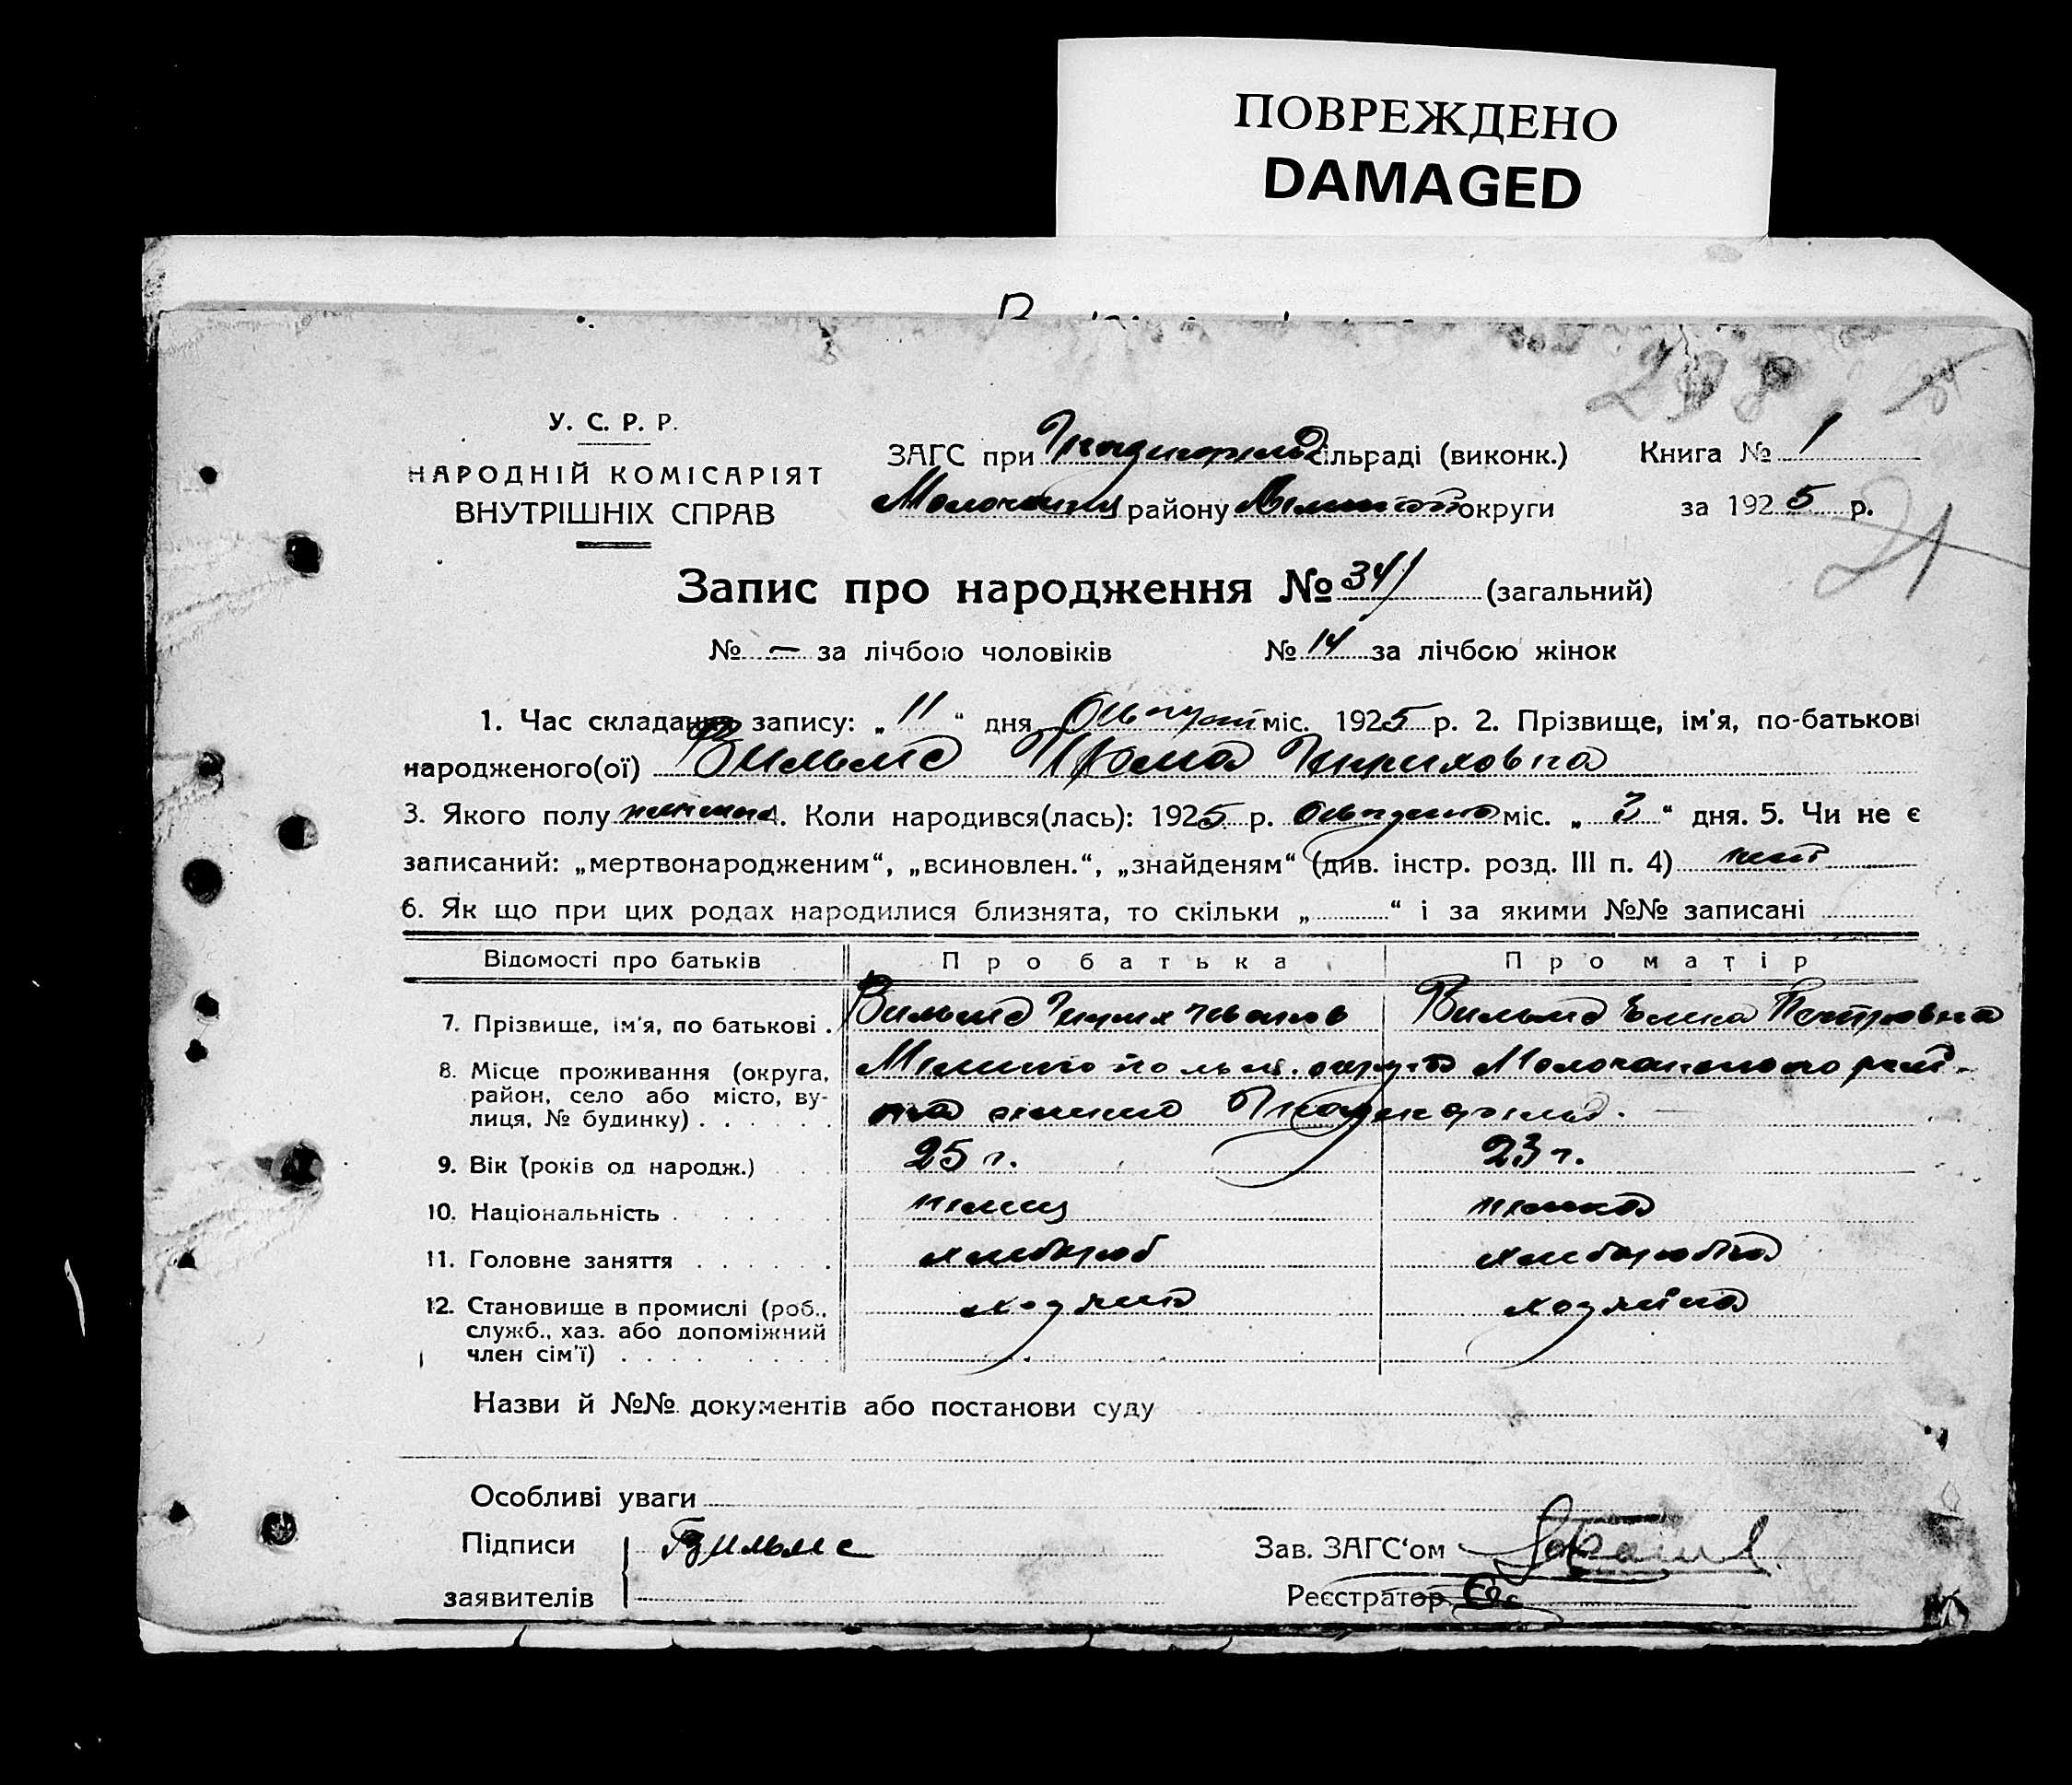 ПОВРЕЖДЕНО
DAMAGED
298
У. С. Р. Р.
НАРОДНІЙ КОМІСАРІЯТ
ВНУТРІШНІХ СПРАВ
ЗАГС при сільраді (виконк.)
району округи
Книга № 1
за 1925 р.
21
Запис про народження № 34 (загальний)
№ — за лічбою чоловіків № 14 за лічбою жінок
1. Час складання запису: „ 11 “ дня міс. 1925 р. 2. Прізвище, ім'я, по-батькові
народженого(ої) Вильмс Ирма Гириховна
3. Якого полу 4. Коли народився(лась): 1925 р. Августа міс. „ 3 “ дня. 5. Чи не є
записаний: „мертвонародженим“, „всиновлен.“, „знайденям“ (див. інстр. розд. III п. 4) нет
6. Як що при цих родах народилися близнята, то скільки „ “ і за якими №№ записані
Відомості про батьків Про батька Про матір
7. Прізвище, ім'я, по батькові . Вильмс Вильмс Петровна
8. Місце проживання (округа,
район, село або місто, ву-
лиця, № будинку) . . . . . .
9. Вік (років од народж.) 25 г. 23 г.
10. Національність немец немка
11. Головне заняття . . . . . . хлебороб хлеборобка
12. Становище в промислі (роб.,
служб., хаз. або допоміжний
член сім'ї)
хозяин хозяйка
Назви й №№ документів або постанови суду
Особливі уваги
Підписи
заявителів
Г Вильмс
Зав. ЗАГС‘ом
Реєстратор